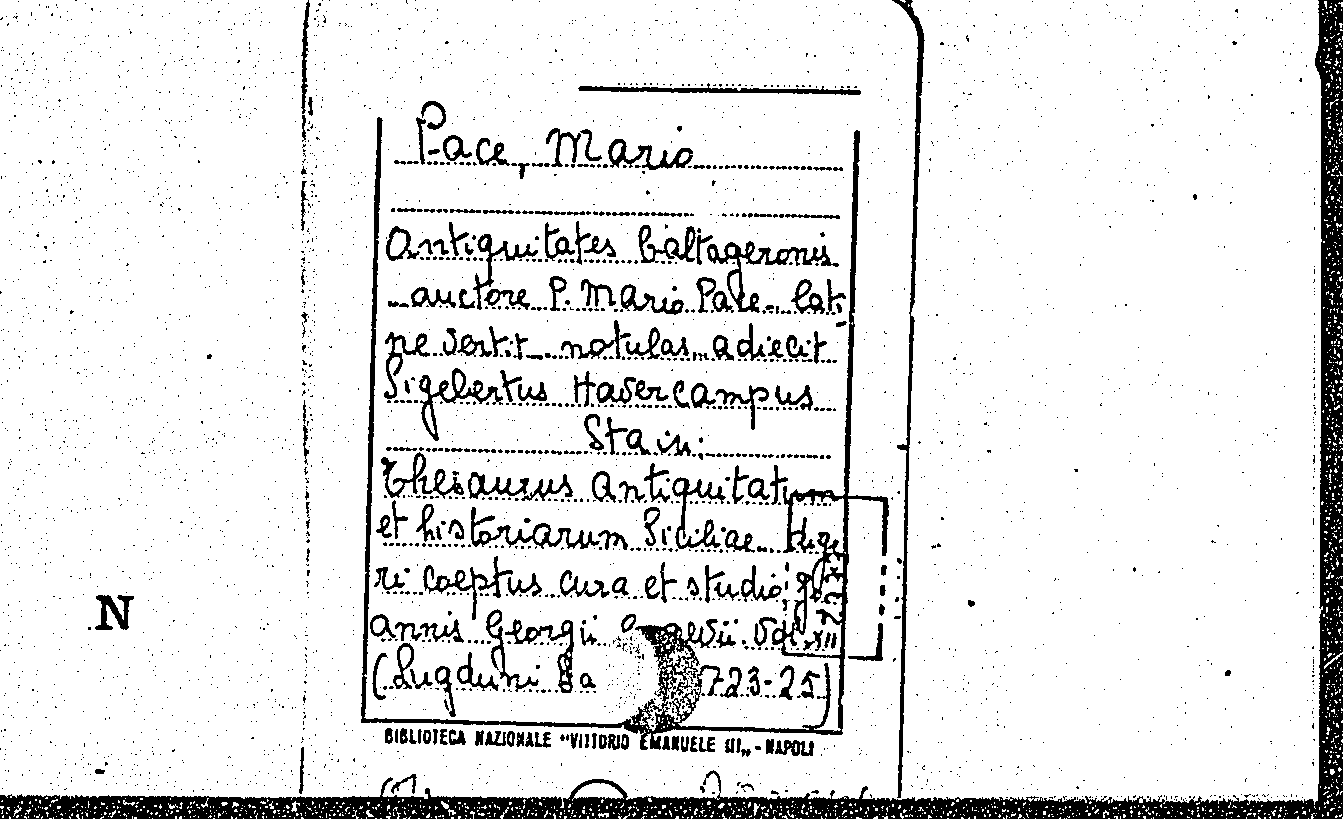 Pace, Mario
Antiquitates Caltageronis
auctore P. Mario Pace. Lati
ne vertit notulas adiecit
Sigebertus Havercampus
Sta in:
Thesaurus antiquitatum
et historiarum Siciliae dige
ri coeptus cura et studio
annis Georgii Vol. XII
(Lugduni Ba 723-25)
BIBLIOTECA NAZIONALE "VITTORIO EMANUELE III„ - NAPOLI
N